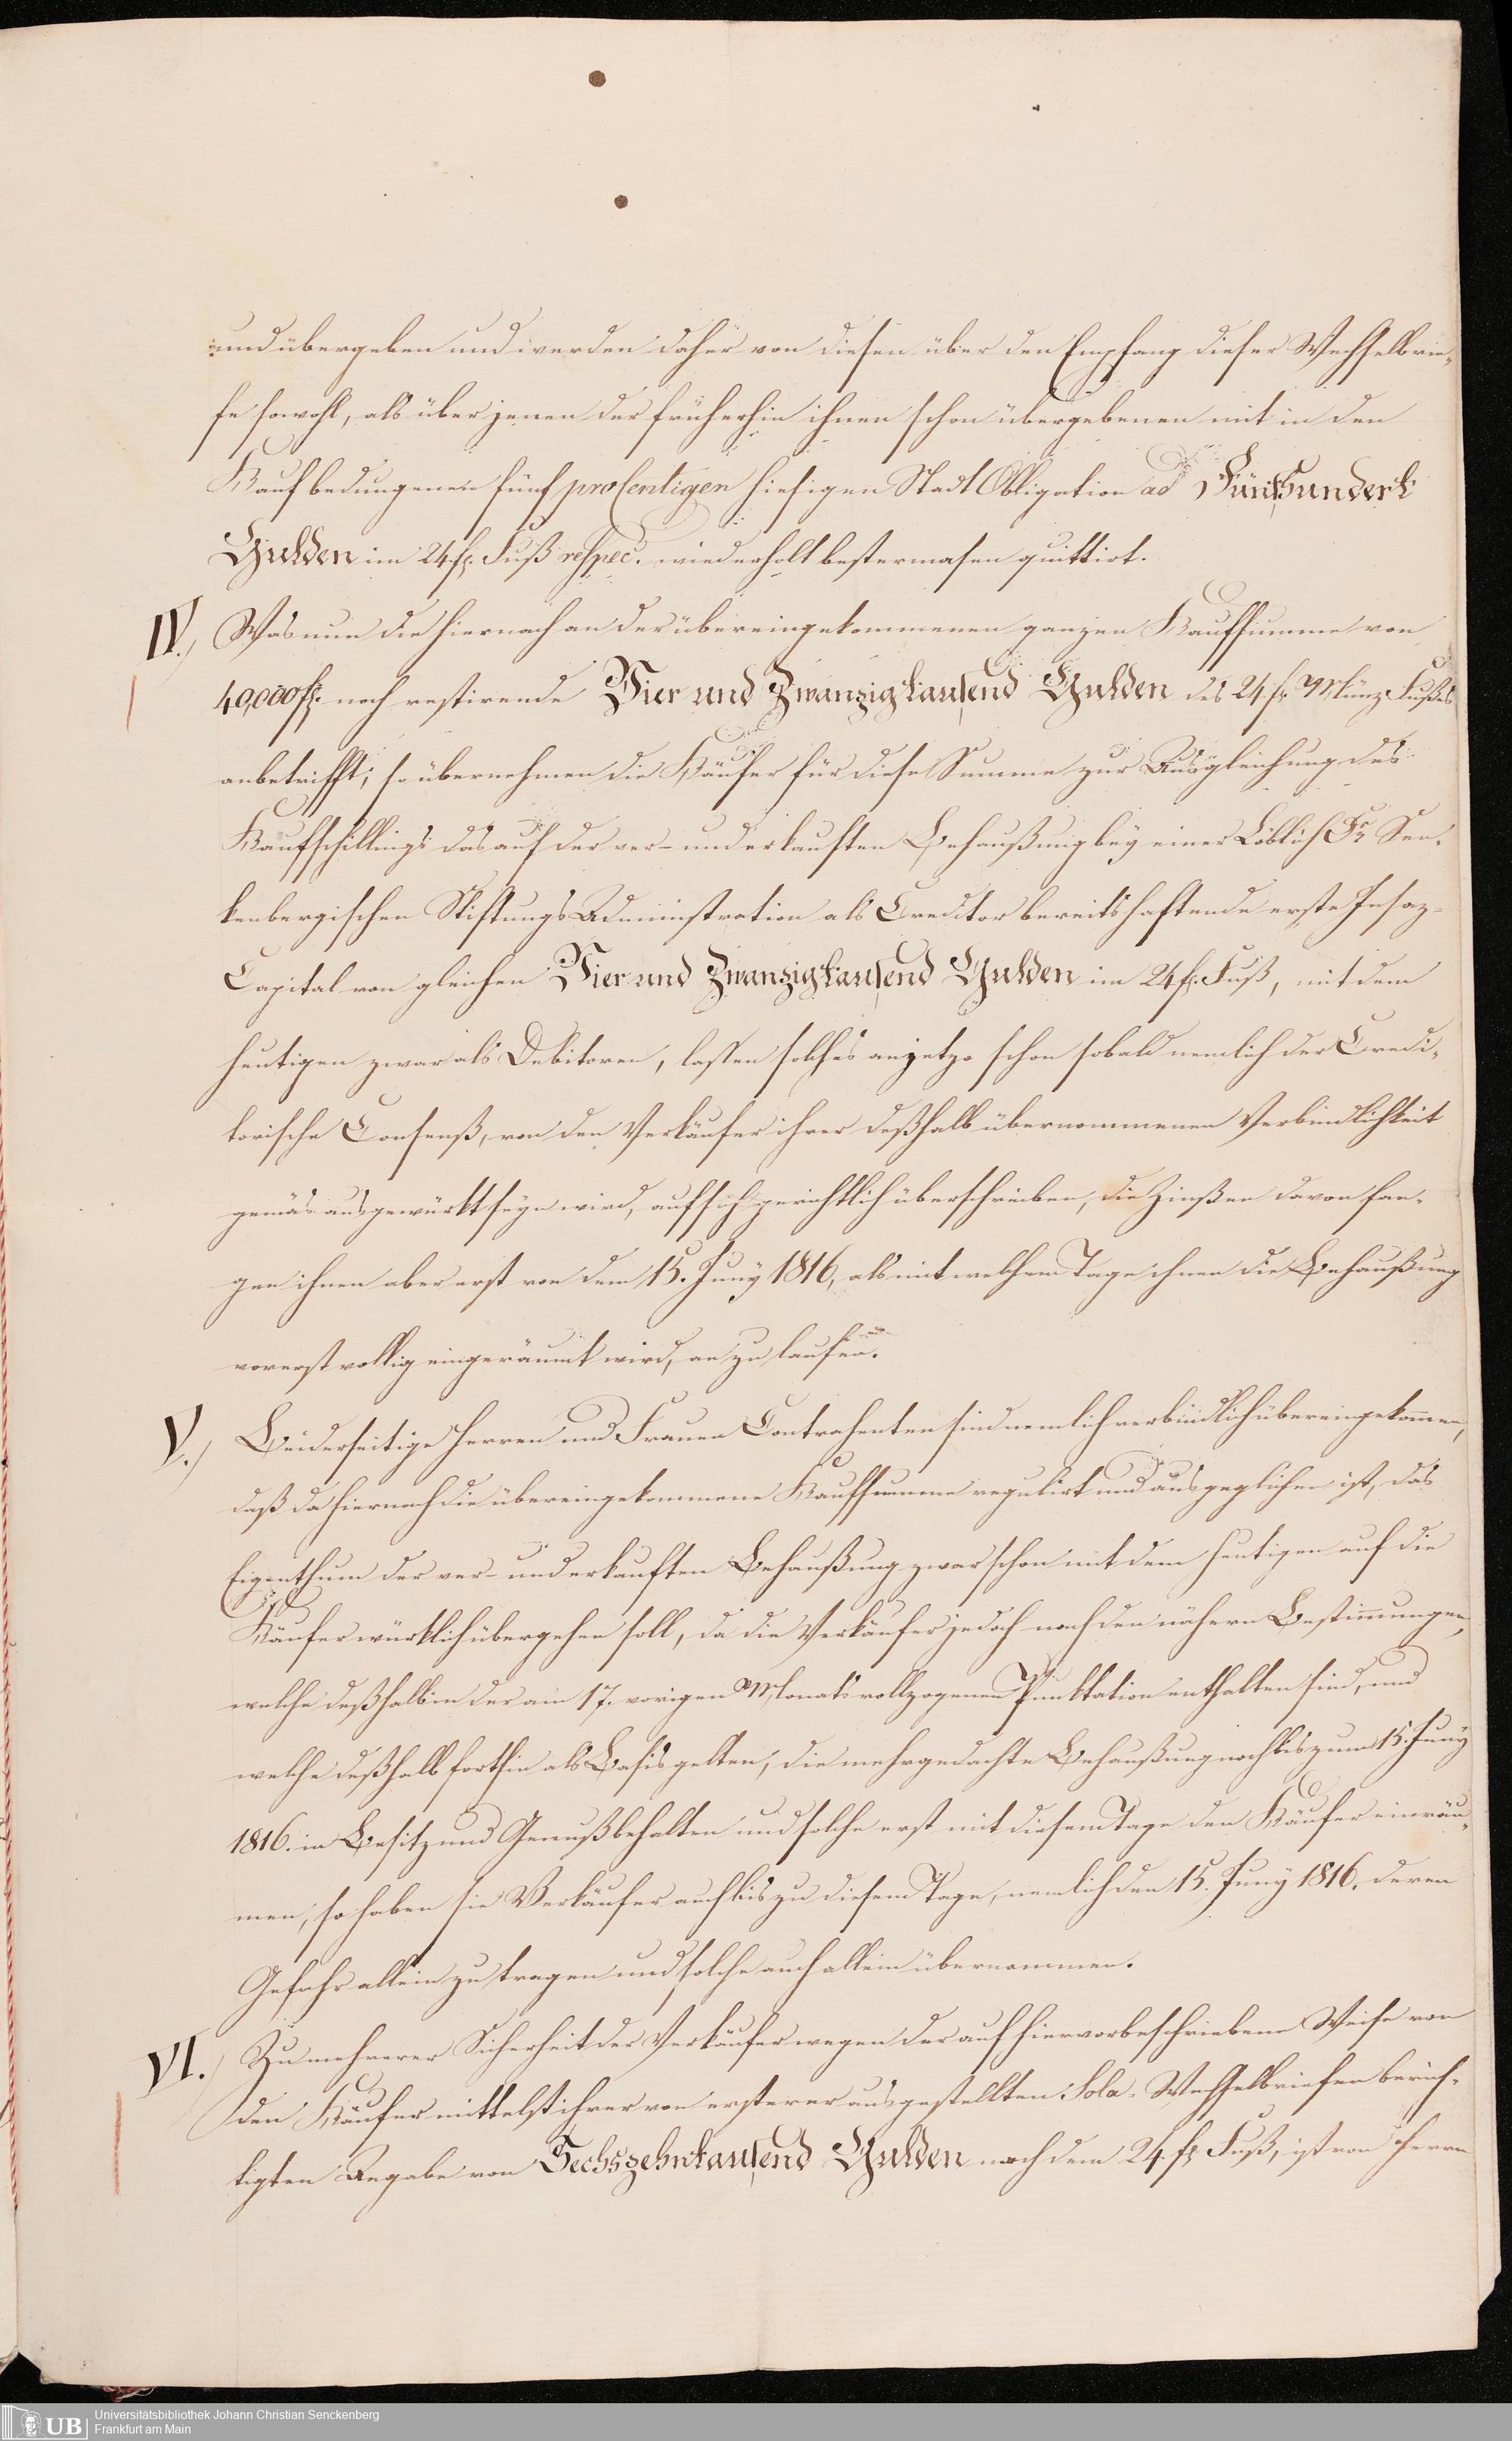 und übergeben und werden daher von diesen über den Empfang dieser Wechselbrie-
fe sowohl, als über jenen der früherhin ihnen schon übergebenen mit in den
Kauf bedungenen fünf procentigen hiesigen Stadt Obligation ad Fünfhundert
Gulden im 24 fl. Fuß respec. wiederholt bestermasen quittirt.
IV.) Was nun die hiernach an der übereingekommenen ganzen Kaufsumme von
40,000 fl. noch restirende Vier und Zwanzigtausend Gulden des 24 fl. Münz Fußes
anbetrifft; so übernehmen die Käufer für diese Summe zur Ausgleichung des
Kaufschillings das auf der ver- und erkauften Behaußung bey einer Löblich Dr Sen-
kenbergischen Stiftungs Administration als Creditor bereits haftende erste Insaz-
Capital von gleichen Vier und Zwanzigtausend Gulden im 24 fl. Fuß, mit dem
heutigen zwar als Debitoren, lassen solches anjetzo schon sobald nemlich der Credi-
torische Consenß, von den Verkäufer ihrer deßhalb übernommenen Verbindlichkeit
gemäs ausgewürkt seyn wird, auf sich gerichtlich überschreiben, die Zinßen davon fan-
gen ihnen aber erst von dem 15. Juny 1816, als mit welchem Tage ihnen die Behaußung
vorerst vollig eingeräumt wird, an zu laufen.
V.) Beiderseitige Herren und Frauen Contrahenten sind nemlich verbindlich übereingekommen,
daß da hiernach die übereingekommene Kaufsumme regulirt und ausgeglichen ist, das
Eigenthum der ver- und erkauften Behaußung zwar schon mit dem heutigen auf die
Käufer würklich übergehen soll, da die Verkäufer jedoch nach den nähern Bestimmungen,
welche deßhalb in der am 17. vorigen Monats vollzogenen Punktation enthalten sind, und
welche deßhalb forthin als Basis gelten, die mehrgedachte Behaußung noch bis zum 15. Juny
1816. in Besitz und Genuß behalten und solche erst mit diesem Tage den Käufer einräu-
men, so haben sie Verkäufer auch bis zu diesem Tage, nemlich den 15. Juny 1816, deren
Gefahr allein zu tragen und solche auch allein übernommen.
VI.) Zu mehrerer Sicherheit der Verkäufer wegen der auf hiervorbeschriebene Weise von
den Käufer mittelst ihrer von ersterer ausgestellten Sola-Wechselbriefen berich-
tigten Angabe von Sechszehntausend Gulden nach dem 24. fl Fuß, ist von Herrn
UB Universitätsbibliothek Johann Christian Senckenberg
Frankfurt am Main